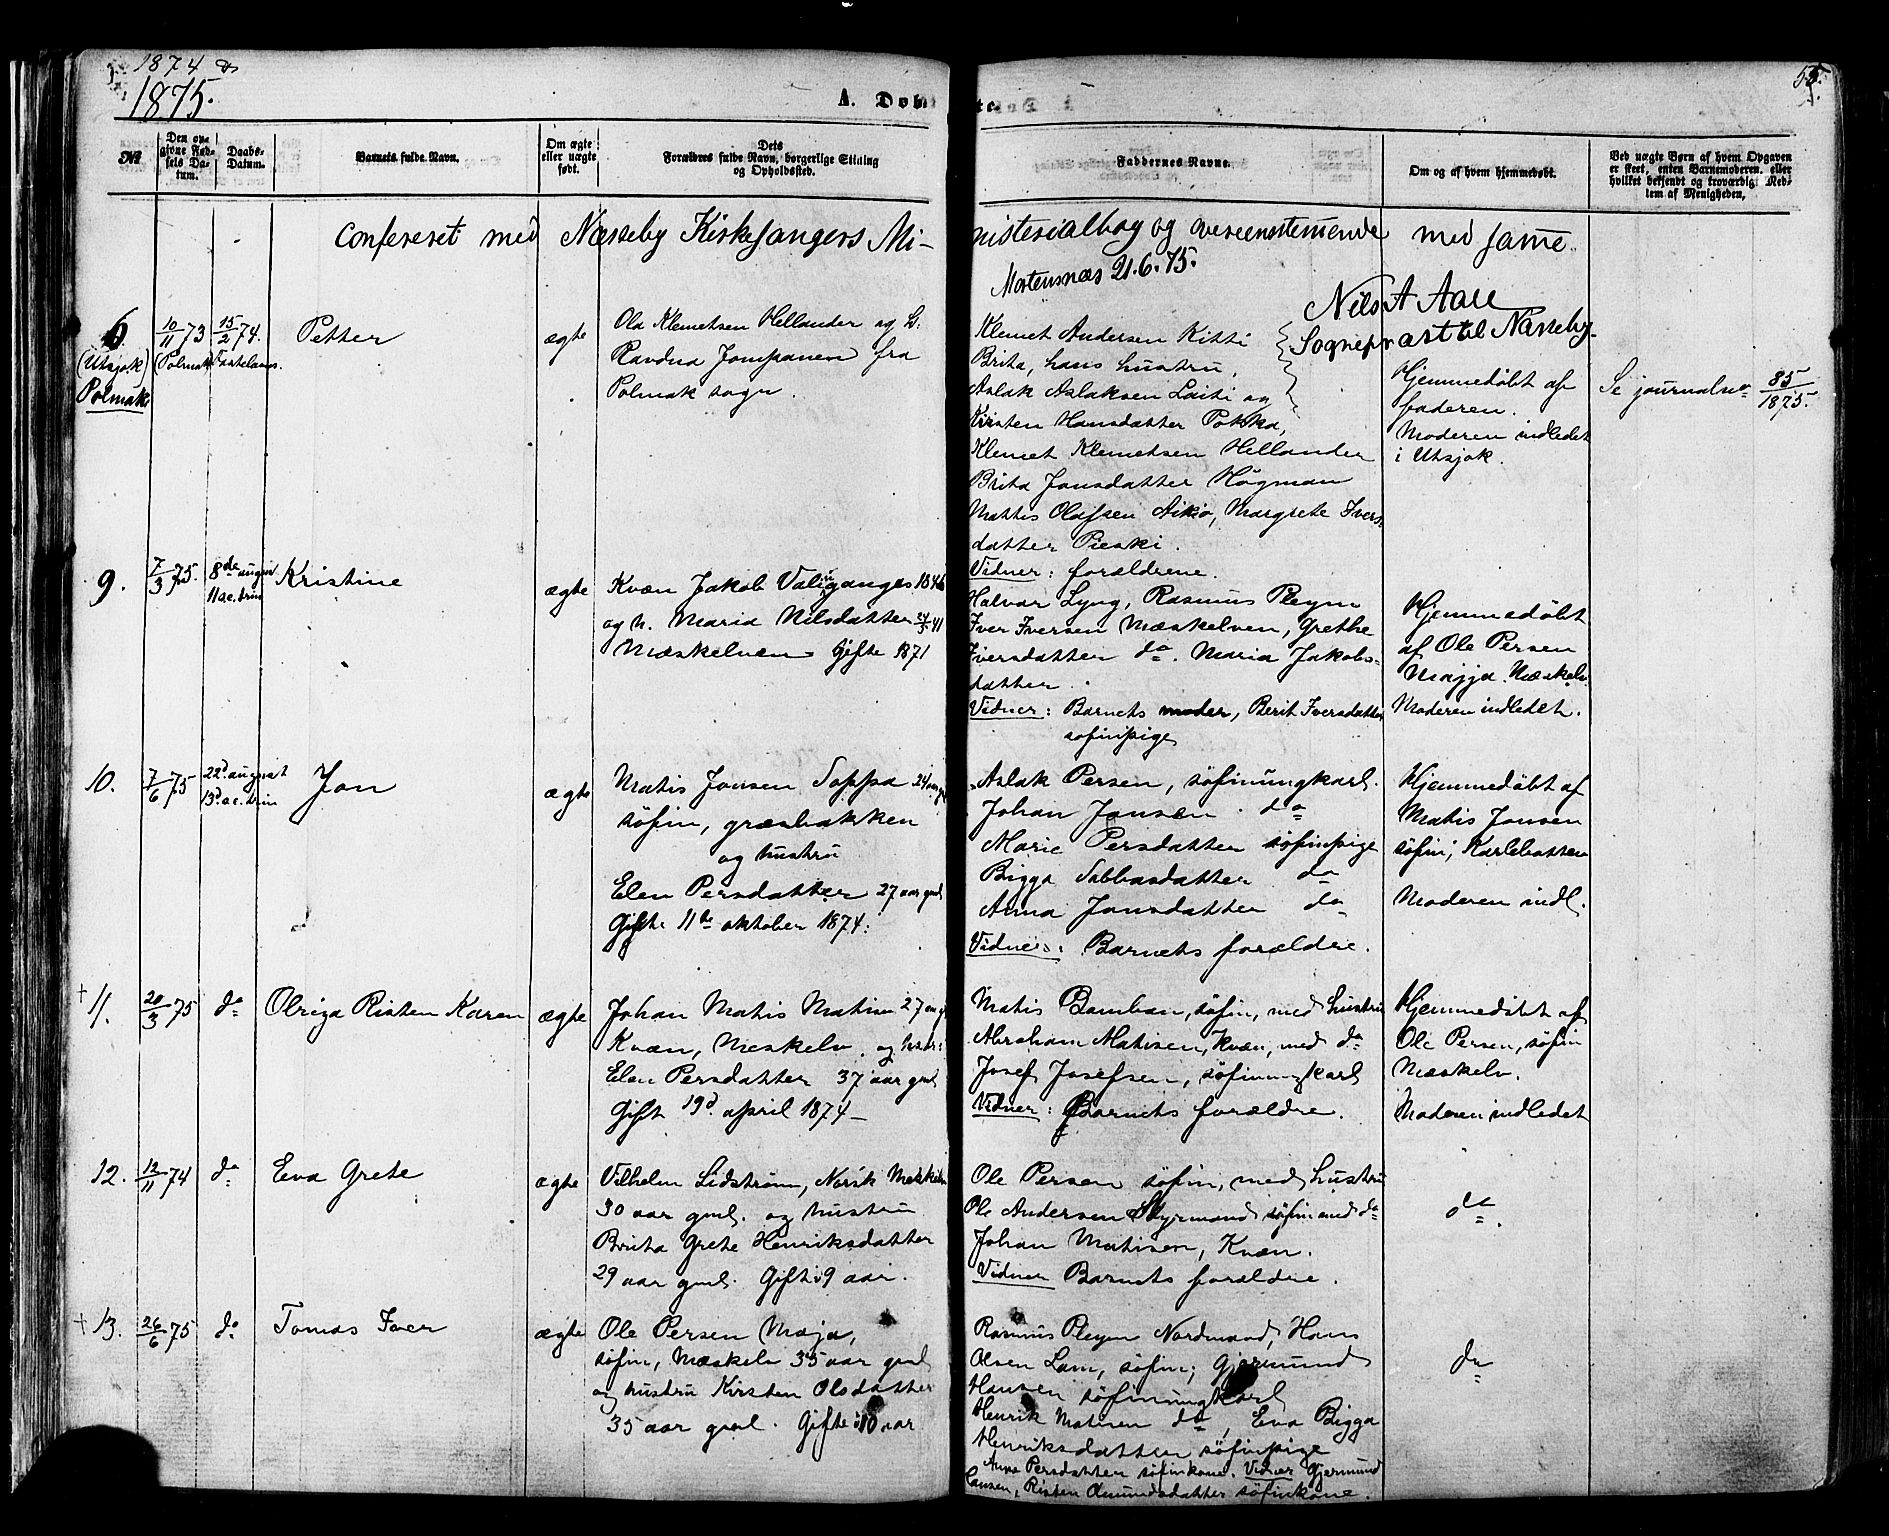 1874 &
1875.
A. Døb
te.
55.
№
Den op-
givne Fød-
sels Da-
tum.
Daabs-
Datum.
Barnets fulde Navn.
Om ægte
eller uægte
født.
Dets
Forældres fulde Navn, borgerlige Stilling
og Opholdssted.
Faddernes Navne.
Om og af hvem hjemmedøbt.
Ved uægte Børn af hvem Opgaven
er skeet, enten Barnemoderen, eller
hvilket bekjendt og troværdig Med-
lem af Menigheden.
Confereret med Næsseby Kirkesangers Mi-
nisterialbog og overeenstemmende med same.
Mortensnæs 21.6.75.
Nils A Aall
Sogneprest til Næsseby.
6
(Utsjok)
Polmak
10/11 73
(Polmak
15/2 74.
Fastelavns.
Petter
ægte
Ola Klemetsen Hellander og h.
Ravdna Jompanen fra
Polmak sogn.
Klemet Andersen Kitti
Brita, hans hustru,
Aslak Aslaksen Laiti og
Kirsten Hansdatter Pokka,
Klemet Klemetsen Hellander
Brita Jonsdatter Högman
Mattis Olafsen Aikio, Margrete Ivers-
datter Pieski.
Vidner: forældrene.
Hjemmedøbt af
faderen.
Moderen indledet
i Utsjok.
Se journalno 85/1875.
9.
7/3 75.
8de august
11 s.e. trin
Kristine
ægte
Kvæn Jakob Valiganges 1846
og h. Maria Nilsdatter 24/3 41
Mæskelven Gifte 1871
Halvar Lyng, Rasmus Pleym
Iver Iversen Mæskelven, Grethe
Iversdatter do. Maria Jakobs-
datter.
Vidner: Barnets moder, Berit Iversdatter
søfinpige
Hjemmedøbt
af Ole Persen
Majja. Mæskelv.
Moderen indledet.
10.
7/6 75
22d august
13d s.e. trin
Jon
ægte
Matis Jonsen Soppa 24 aar gl
søfin, græsbakken
og hustru
Elen Persdatter 27 aar gml
Gifte 11te oktober 1874.
Aslak Persen, søfinungkarl.
Johan Jansen do
Marie Persdatter søfinpige
Bigga Sabbasdatter do
Anna Jonsdatter do
Vidner: Barnets forældre.
Hjemmedøbt af
Matis Jonsen
søfin, Karlebotten
Moderen indl.
† 11.
20/3 75
do
Olriga Risten Karen
ægte
Johan Matis Matisen 27 aar g
Kvæn, Meskelv. og hustr:
Elen Persdatter 37 aar gml
Gift 19d april 1874 -
Matis Bomban, søfin, med hustru
Abraham Matisen, Kvæn, med do
Josef Josefsen, søfinungkarl
Vidner: Barnets forældre.
Hjemmedøbt af
Ole Persen, søfin
Mæskelv.
Moderen indledet
12.
12/11 74
do
Eva Grete
ægte
Vilhelm Lidstrøm, Norsk Meskelv
30 aar gml. og hustru
Brita Grete Henriksdatter
29 aar gml. Gift i 9 aar.
Ole Persen søfin, med hustru
Ole Andersen Styrmand søfin med do
Johan Matisen, Kvæn.
Vidner Barnets forældre.
do
† 13.
26/6 75
do
Tomas Iver
ægte
Ole Persen Maja,
søfin, Mæskelv 35 aar gml
og hustru Kirsten Olsdatter
35 aar gml. Gifte i 10 aar
Rasmus Pleym Nordmand, Hans
Olsen Lam, søfin; Gjermund
Hansen søfinungkarl
Henrik Matisen do, Eva Bigga
Henriksdatter søfinpige
Anna Persdatter søfinkone. Vidner Gjermund
Hansen, Risten Amundsdatter søfinkone.
do